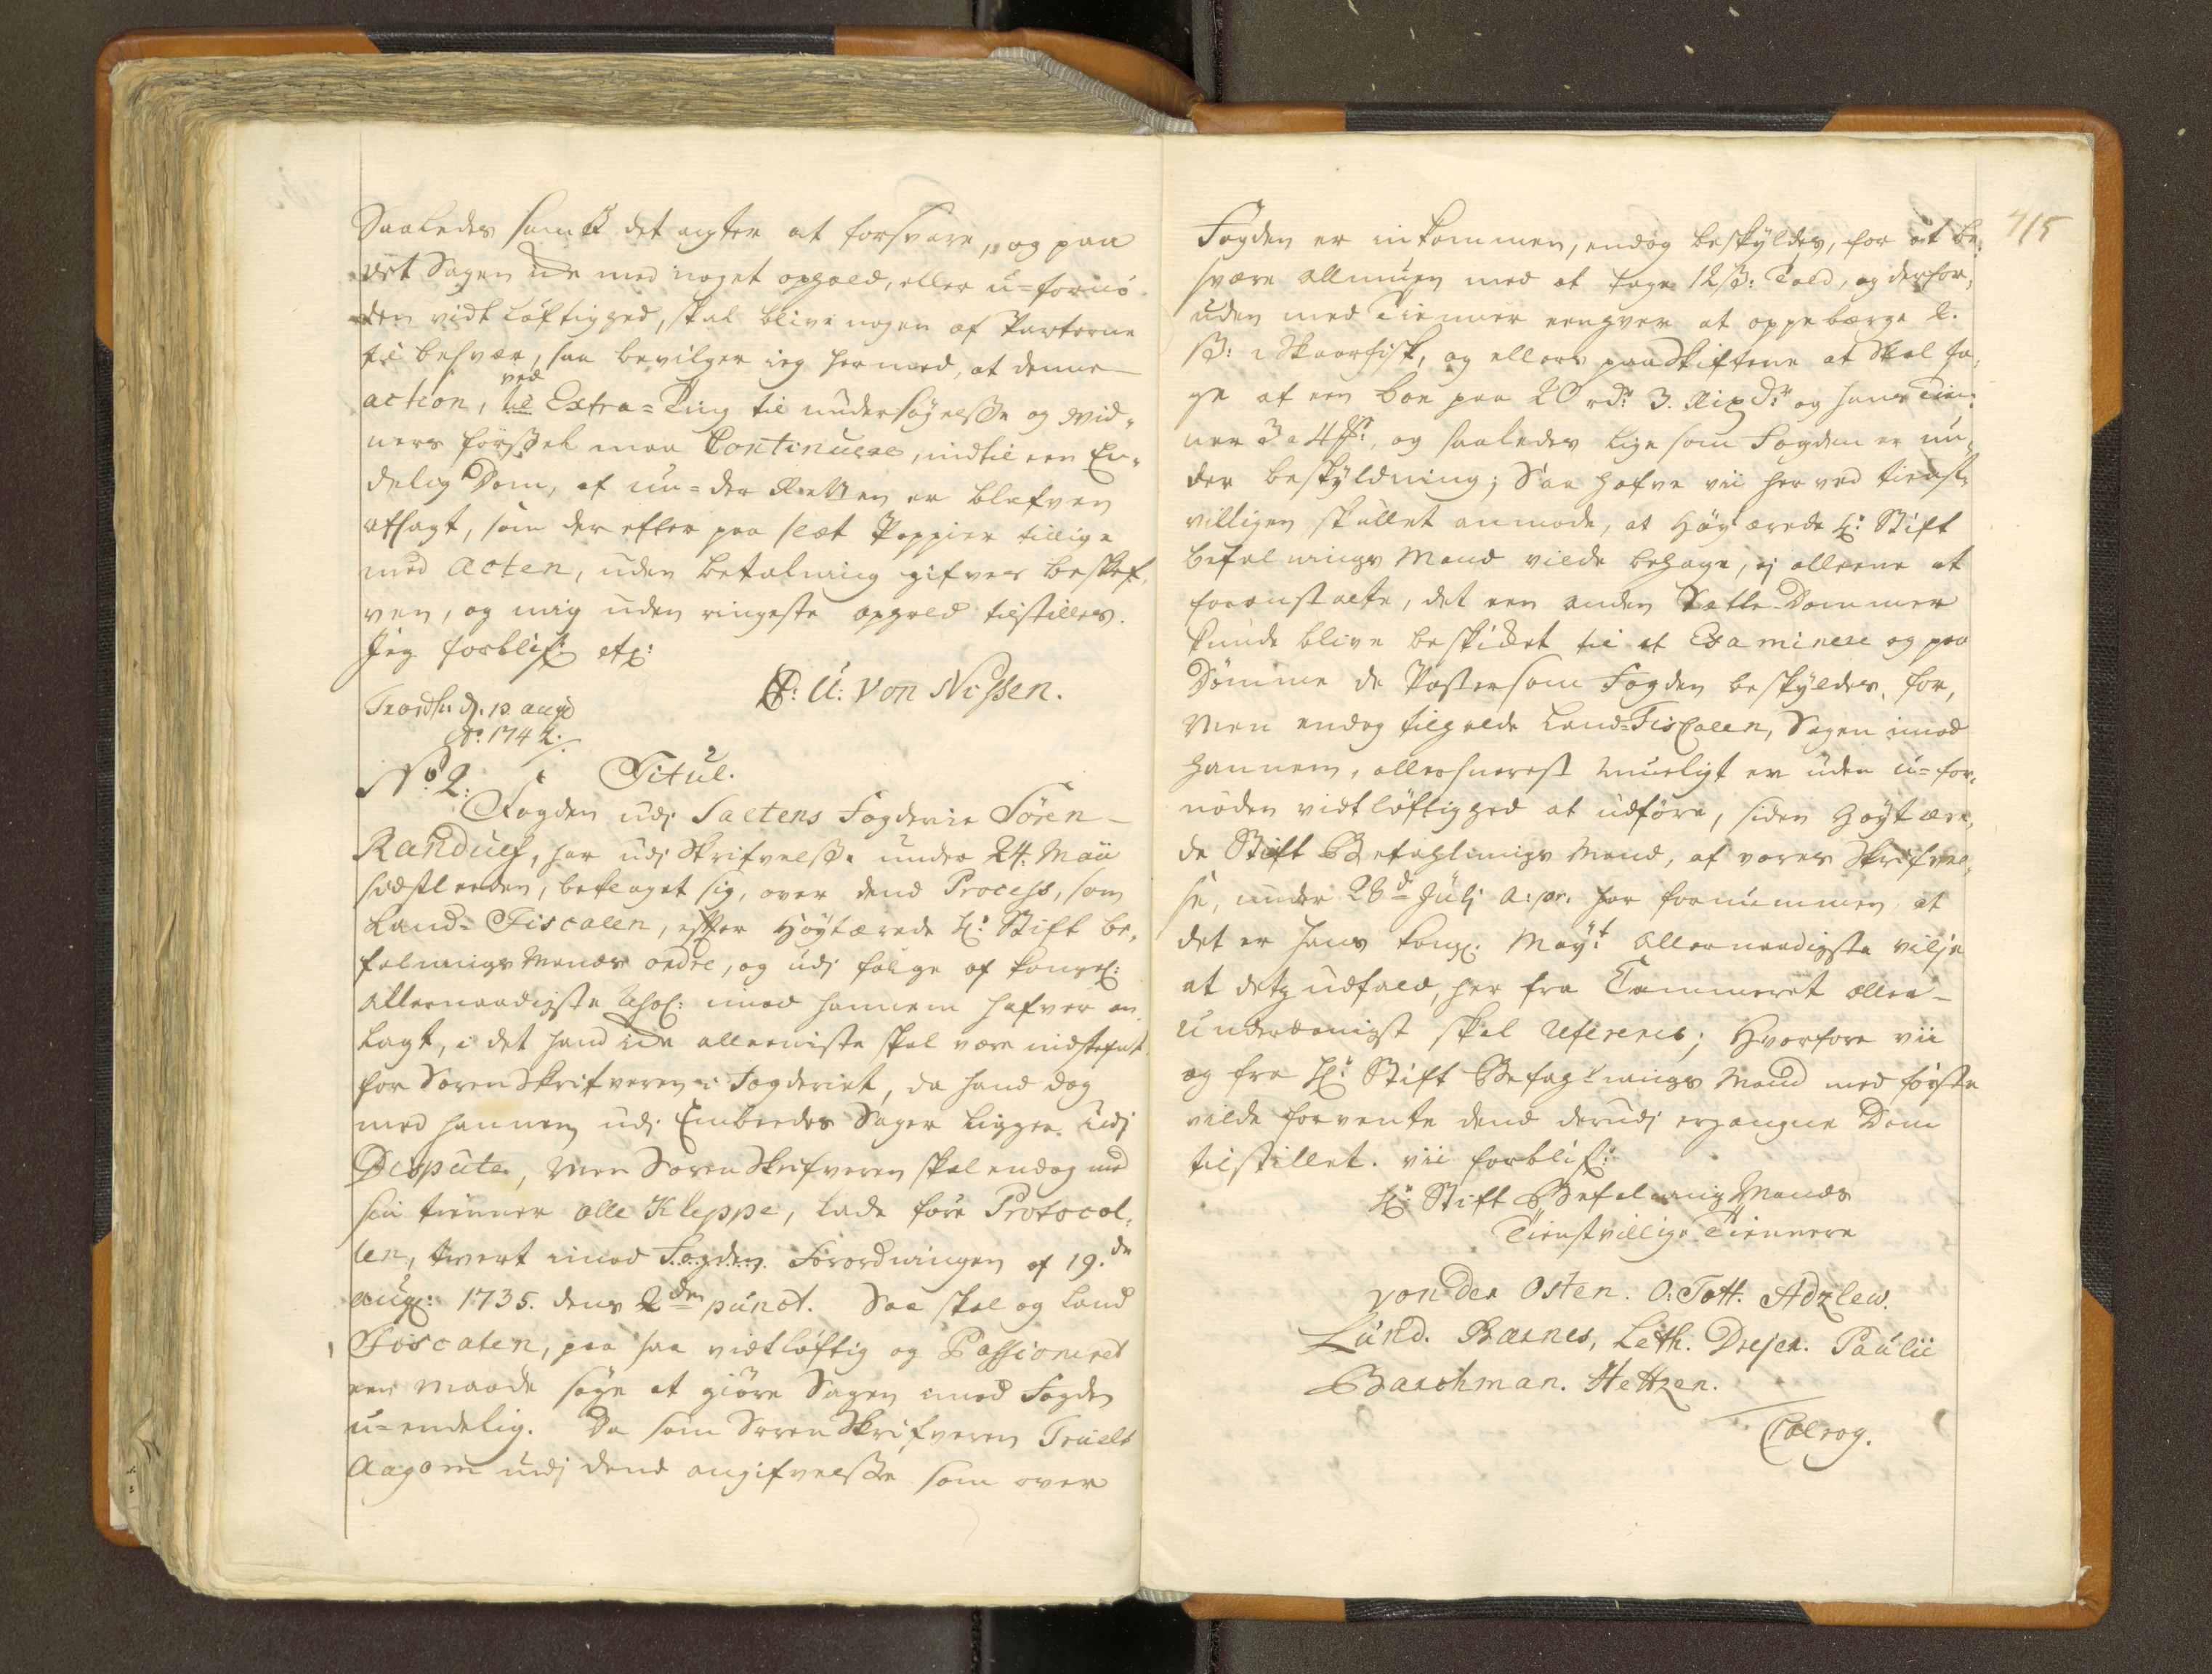 Saaledes som de det agter at forsvare, og paa
det Sagen ide med noget ophold, eller u=fornö
den vidtløftighed, skal blive nogen af Parterne
til besvær, saa bevilger ieg hermed, at denne
action, ved Extra=Ting til undersøgelsse og vid-
ners førssel maa Continuere, indtil een En-
delig Dom, af un=der Retten er blefven
afsagt, som der efter paa slet Pappier tillige
med acten, uden betalning gifves beskref-
ven, og mig uden ringeste ophold tilstilles.
Jeg forblif: etc:
Trondh: d. 13 aug
Ao. 1742.
U: Von Nissen.
No. 2: Titul.
Fogden udj Saltens Fogderie Sören
Randulf, har udj Skrifvelsse under 24. Maii
sidstleeden, beklaget sig, over dend Process, som
Land-Fiscalen, efter Høytærede Hr: Stift be-
falnings Mands ordre, og udj følge af Kongel:
allernaadigste Resol: imod hannem hafver an-
lagt, i det hand ide alleeniste skal være indstefnt
for Sorenskrifveren i Fogderiet, da hand dog
med hannem udj Embedes Sager ligger udj
Dispute, men Sorenskrifveren skal endog med
sin tienner Olle Kleppe, lade føre Protocol-
len, tvert imod Fogden Forordningen af 19.de
aug: 1735. dens 2den punct. Saa skal og Land
Fiscalen, paa saa vidtløftig og Passioneret
een maade søge at giøre Sagen imod Fogden
u=endelig. Da som Sorenskrifveren Truels
Aagom udj dend angifvelsse som over
715
Fogden er inkommen, endog beskyldes, for at be-
svære allmuen med at tage 12 ß: Told, og derfor-
uden med Tienner eenhver at oppebærge 2.
ß: Skaarfisk, og ellers paa Skifterne at skal ta-
ge af een boe paa 20 rdr 3. Rixdr og hans Tien-
ner 3 a 4 , og saaledes lige som Fogden er un-
der beskyldning; Saa hafve vii herved tienst-
villigen skullet anmode, at Høytærede Hr: Stift
befalnings Mand vilde behage, ej alleene at
foranstalte, det een anden Sætte-Dommer
kunde blive beskicket til at Examinere og paa
Dömme de Poster som Fogden beskyldes, for,
Men endog tilholde Land-Fiscalen, Sagen imod
hannem, allersnarest mueligt er uden u=for-
nöden vidtlöftighed at udföre, siden Höytære-
de Stift Befahlnings Mand, af vores Skrifvel-
se, under 28de Julij a: pr. har fornummen at
det er hans Kong: Mayt allernaadigste vilje
at detz udfald, her fra Cammeret aller-
underdanigst skal refereris; Hvorfore vii
og fra Hr: Stift Befahlnings Mand med første
vilde forvente dend derudj ergangne Dom
tilstillet. vii forblif:
Hr: Stift Befalnings Mands
Tienstvillige Tiennere
von der Osten. O. Tott. Adzlew.
Lund. Barnes, Leth. Drejer. Paulii
Barchman. Hettzen.
Colrog.